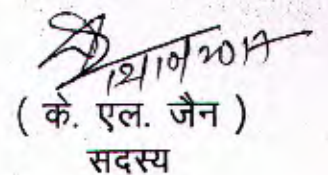 12/10/2017
( के. एल. जैन )
सदस्य